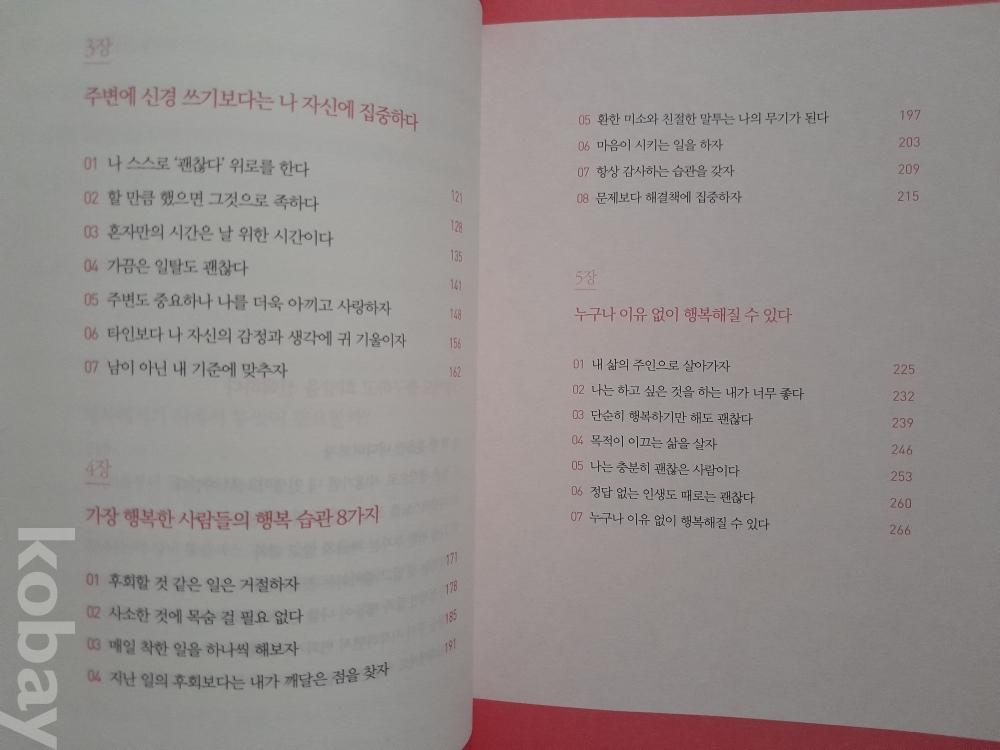 3장
주변에 신경 쓰기보다는 나 자신에 집중하다
01 나 스스로 '괜찮다' 위로를 한다 121
02 할 만큼 했으면 그것으로 족하다 128
03 혼자만의 시간은 날 위한 시간이다 135
04 가끔은 일탈도 괜찮다 141
05 주변도 중요하나 나를 더욱 아끼고 사랑하자 148
06 타인보다 나 자신의 감정과 생각에 귀 기울이자 156
07 남이 아닌 내 기준에 맞추자 162
4장
가장 행복한 사람들의 행복 습관 8가지
01 후회할 것 같은 일은 거절하자 171
02 사소한 것에 목숨 걸 필요 없다 178
03 매일 착한 일을 하나씩 해보자 185
04 지난 일의 후회보다는 내가 깨달은 점을 찾자 191
05 환한 미소와 친절한 말투는 나의 무기가 된다 197
06 마음이 시키는 일을 하자 203
07 항상 감사하는 습관을 갖자 209
08 문제보다 해결책에 집중하자 215
5장
누구나 이유 없이 행복해질 수 있다
01 내 삶의 주인으로 살아가자 225
02 나는 하고 싶은 것을 하는 내가 너무 좋다 232
03 단순히 행복하기만 해도 괜찮다 239
04 목적이 이끄는 삶을 살자 246
05 나는 충분히 괜찮은 사람이다 253
06 정답 없는 인생도 때로는 괜찮다 260
07 누구나 이유 없이 행복해질 수 있다 266
kobay